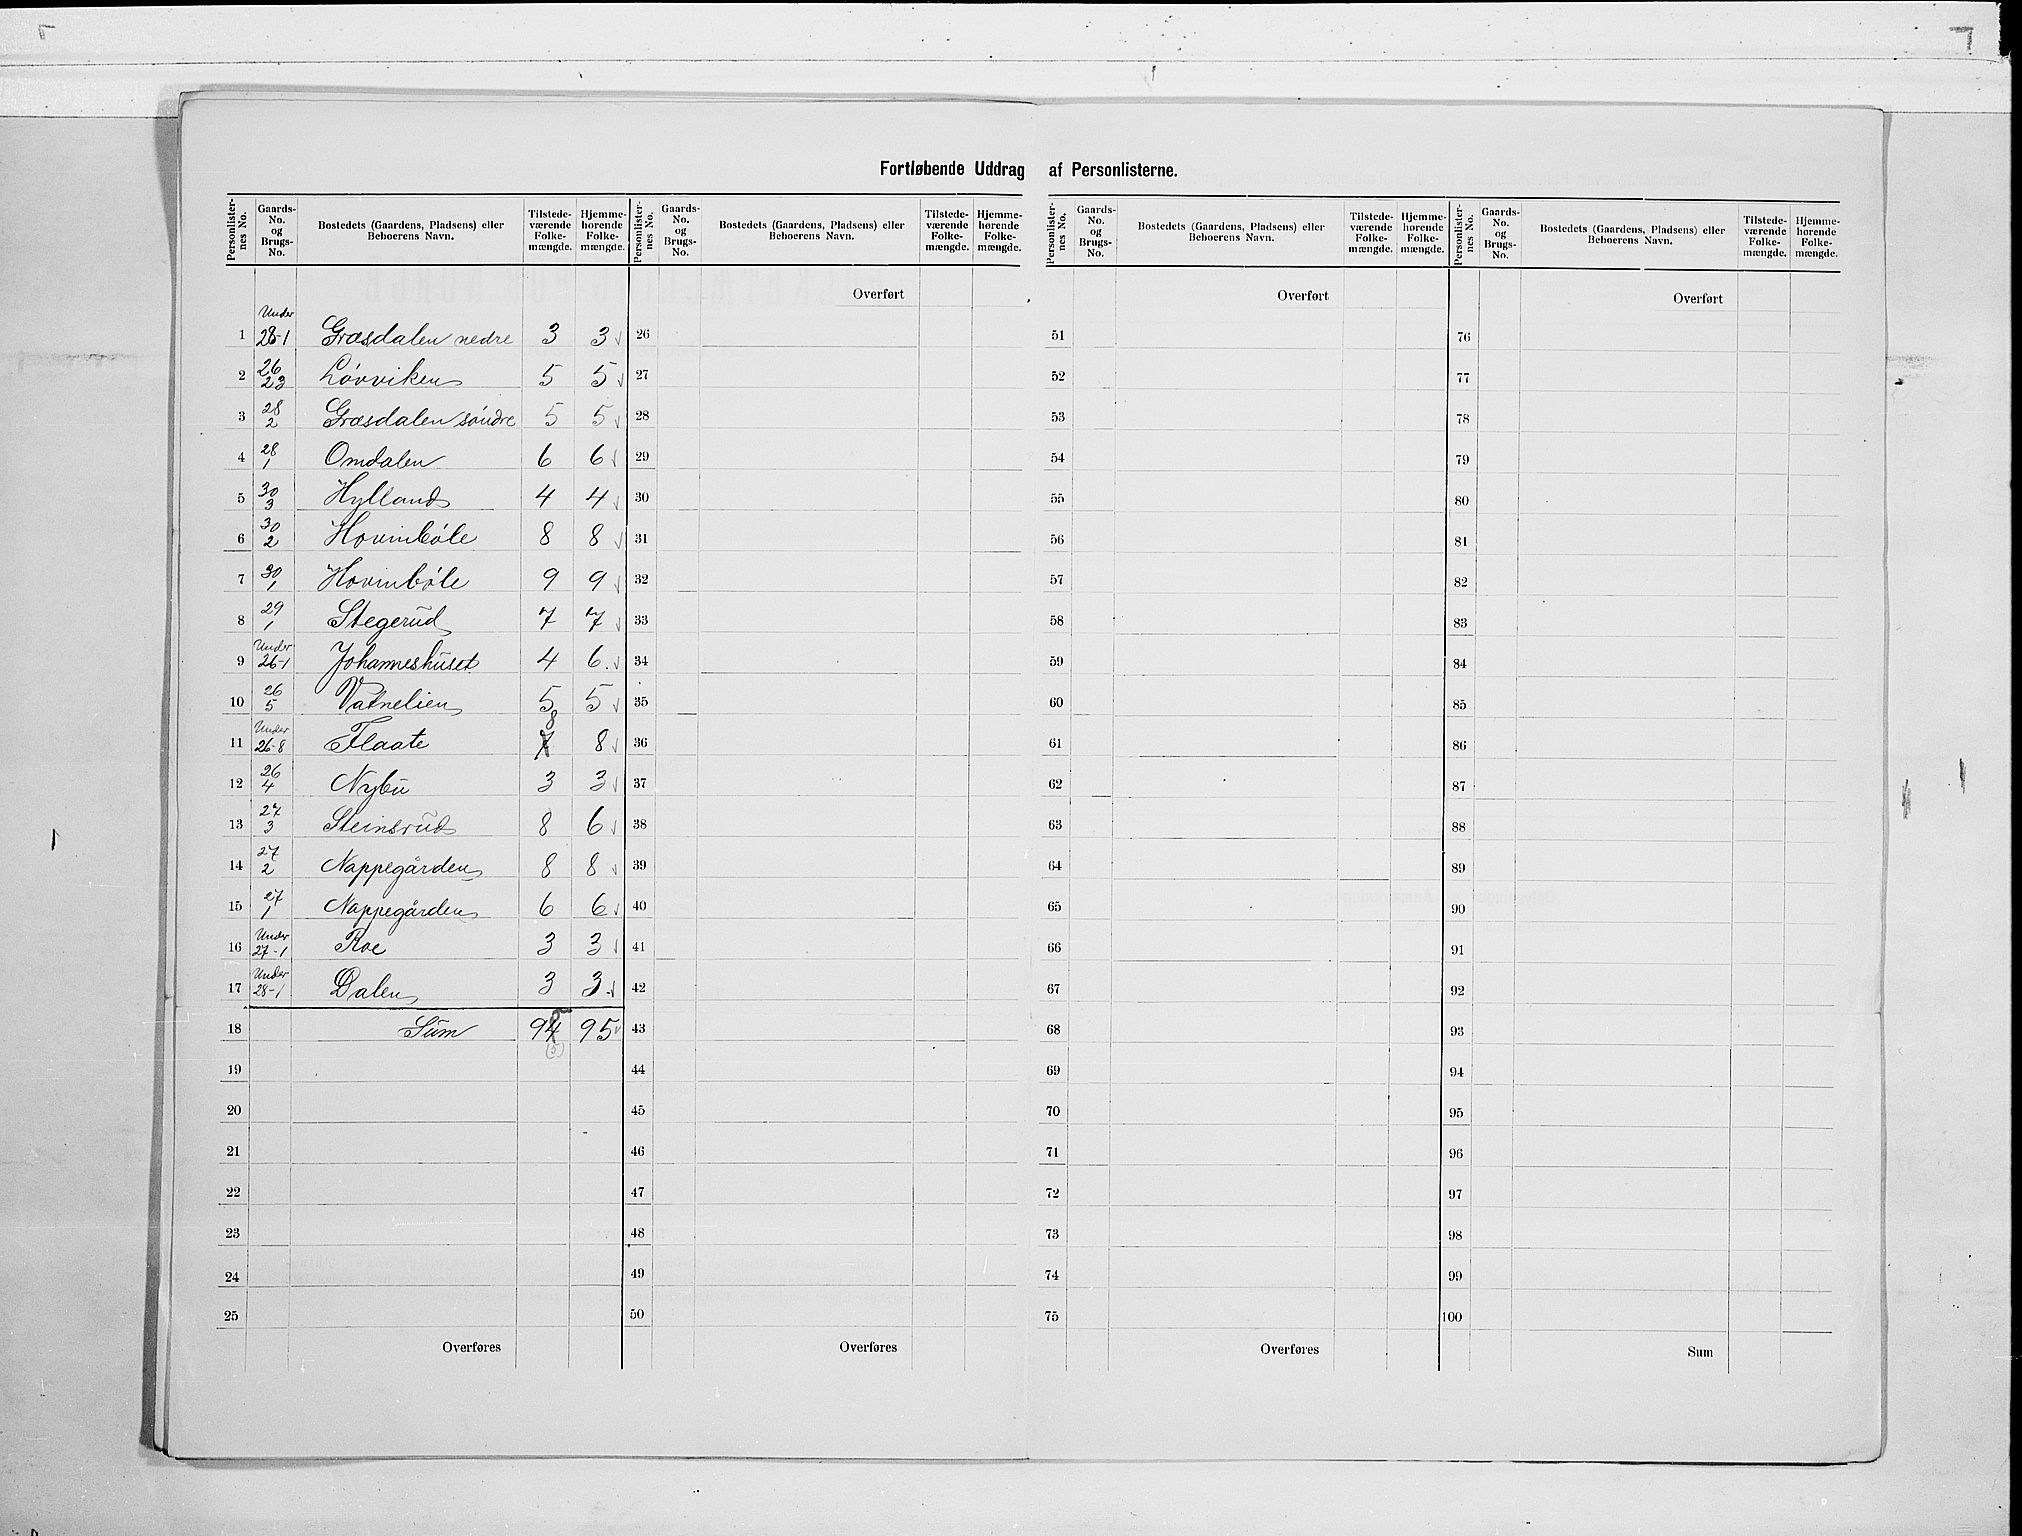 Fortløbende Uddrag af Personlisterne.
Personlisternes No. Gaards-No. og Brugs-No. Bostedets (Gaardens, Pladsens) eller Beboerens Navn. Tilstedeværende Folkemængde. Hjemmehørende Folkemængde.
Personlisternes No. Gaards-No. og Brugs-No. Bostedets (Gaardens, Pladsens) eller Beboerens Navn. Tilstedeværende Folkemængde. Hjemmehørende Folkemængde.
Personlisternes No. Gaards-No. og Brugs-No. Bostedets (Gaardens, Pladsens) eller Beboerens Navn. Tilstedeværende Folkemængde. Hjemmehørende Folkemængde.
Personlisternes No. Gaards-No. og Brugs-No. Bostedets (Gaardens, Pladsens) eller Beboerens Navn. Tilstedeværende Folkemængde. Hjemmehørende Folkemængde.
Overført Overført Overført
1 Under 28-1 Græsdalen nedre 3 3 26 51 76
2 26 23 Løvviken 5 5 27 52 77
3 28 2 Græsdalen søndre 5 5 28 53 78
4 28 1 Omdalen 6 6 29 54 79
5 30 3 Hylland 4 4 30 55 80
6 30 2 Hovinbøle 8 8 31 56 81
7 30 1 Hovinbøle 9 9 32 57 82
8 29 1 Stegerud 7 7 33 58 83
9 Under 26-1 Johanneshuset 4 6 34 59 84
10 26 5 Vatnelien 5 5 35 60 85
11 Under 26-8 Flaate 7 8 8 36 61 86
12 26 4 Nybu 3 3 37 62 87
13 27 3 Steinsrud 8 6 38 63 88
14 27 2 Nappegården 8 8 39 64 89
15 27 1 Nappegården 6 6 40 65 90
16 Under 27-1 Roe 3 3 41 66 91
17 Under 28-1 Dalen 3 3 42 67 92
18 Sum 94 5 95 43 68 93
(5)
19 44 69 94
20 45 70 95
21 46 71 96
22 47 72 97
23 48 73 98
24 49 74 99
25 50 75 100
Overføres Overføres Overføres Sum